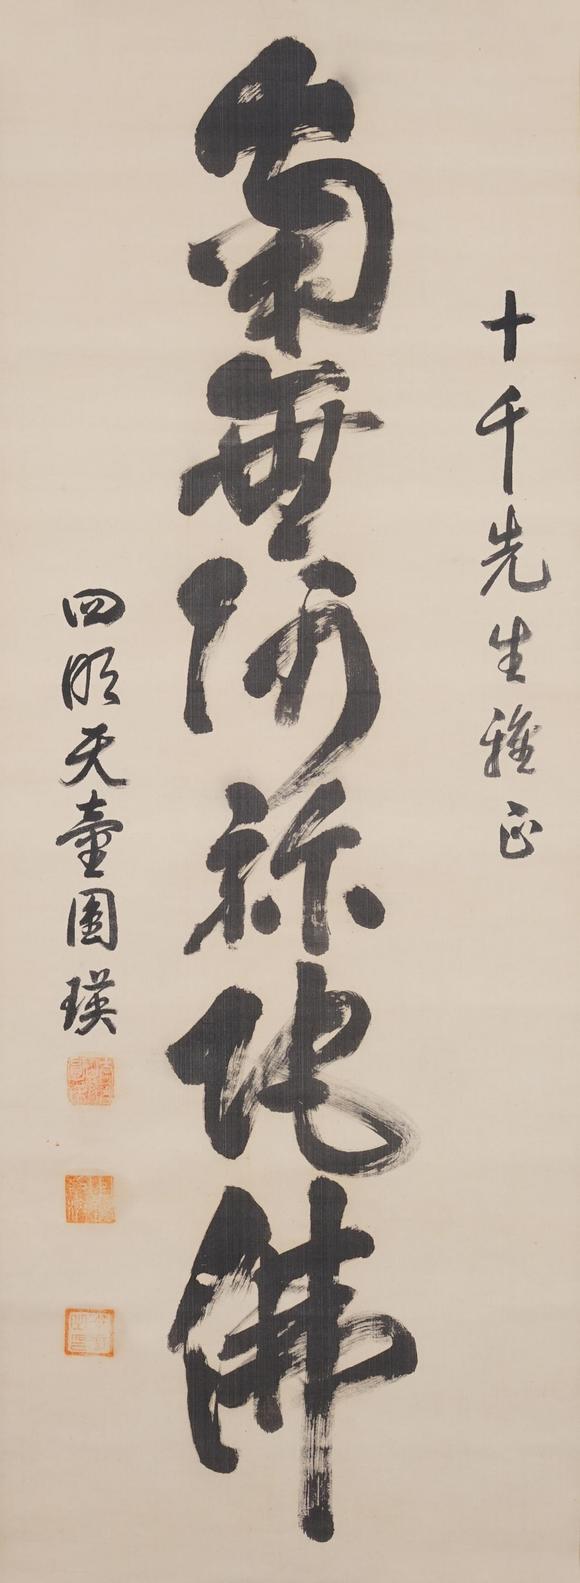 十千先生雅正
南無阿弥陀佛
四明天童圓瑛